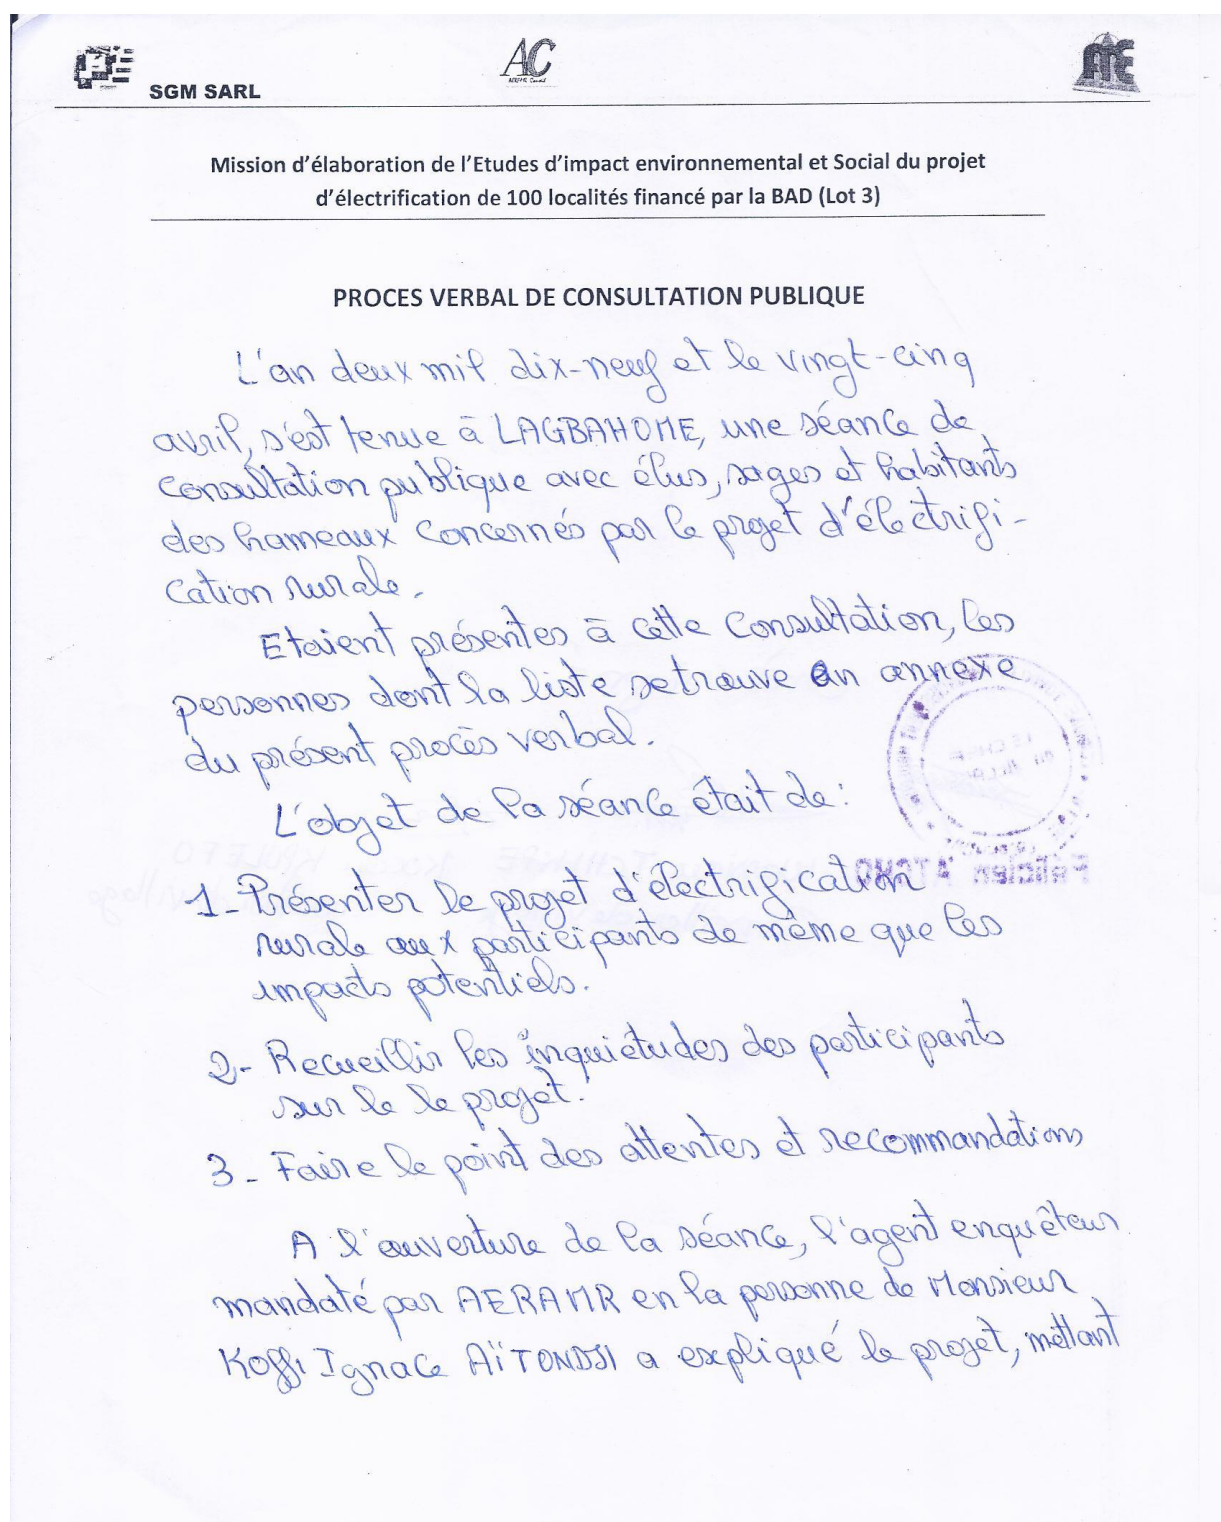 SGM SARL
AC
Mission d'élaboration de l'Etudes d'impact environnemental et Social du projet
d'électrification de 100 localités financé par la BAD (Lot 3)
PROCES VERBAL DE CONSULTATION PUBLIQUE
L'an deux mil dix-neuf et le vingt-cinq
avril, s'est tenue à LAGBAHOME, une séance de
consultation publique avec élus, sages et habitants
des hameaux concernés par le projet d'électrifi-
cation rurale.
Etaient présentes à cette consultation, les
personnes dont la liste se trouve en annexe
du présent procès verbal.
L'objet de la séance était de :
Félicien ATCHO
1- Présenter le projet d'électrification
rurale aux participants de même que les
impacts potentiels.
2- Recueillir les inquiétudes des participants
sur le le projet.
3- Faire le point des attentes et recommandations
A l'ouverture de la séance, l'agent enquêteur
mandaté par AERAMR en la personne de Monsieur
Koffi Ignace AÏTONDJI a expliqué le projet, mettant